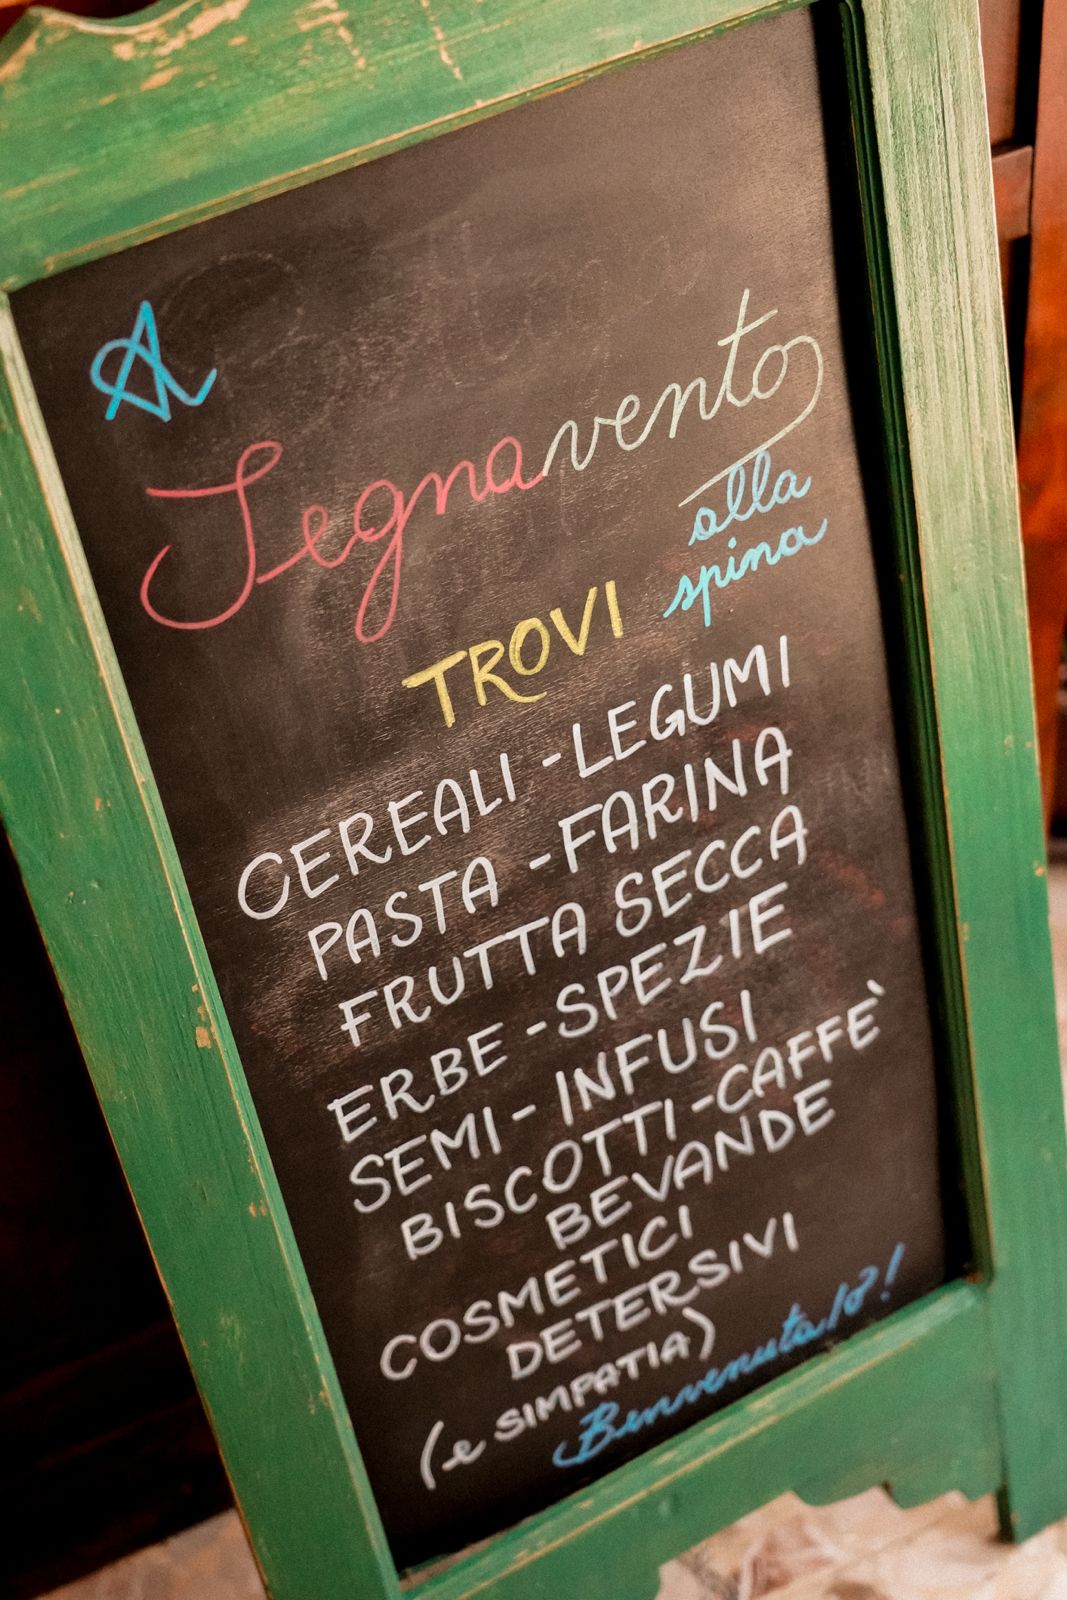 A
Segnavento
alla
spina
TROVI
CEREALI - LEGUMI
PASTA - FARINA
FRUTTA SECCA
ERBE - SPEZIE
SEMI - INFUSI
BISCOTTI - CAFFÈ
BEVANDE
COSMETICI
DETERSIVI
(e SIMPATIA)
Benvenuta/o!